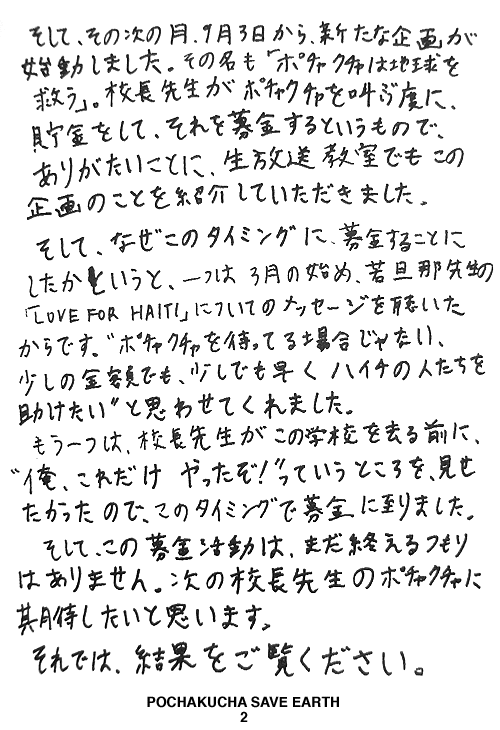 そして、その次の月、9月3日から、新たな企画が
始動しました。その名も「ポチャクチャは地球を
救う」。校長先生がポチャクチャを叫ぶ度に、
貯金をして、それを募金するというもので、
ありがたいことに、生放送教室でもこの
企画のことを紹介していただきました。
そして、なぜこのタイミングに、募金することに
したかというと、一つは3月の始め、若旦那先生の
「LOVE FOR HAITI」についてのメッセージを聴いた
からです。"ポチャクチャを待ってる場合じゃない、
少しの金額でも、少しでも早くハイチの人たちを
助けたい"と思わせてくれました。
もう一つは、校長先生がこの学校を去る前に、
"俺、これだけ やったぞ!"っていうところを、見せ
たかったので、このタイミングで募金に至りました。
そして、この募金活動は、まだ終えるつもり
はありません。次の校長先生のポチャクチャに
期待したいと思います。
それでは、結果をご覧ください。
POCHAKUCHA SAVE EARTH
2